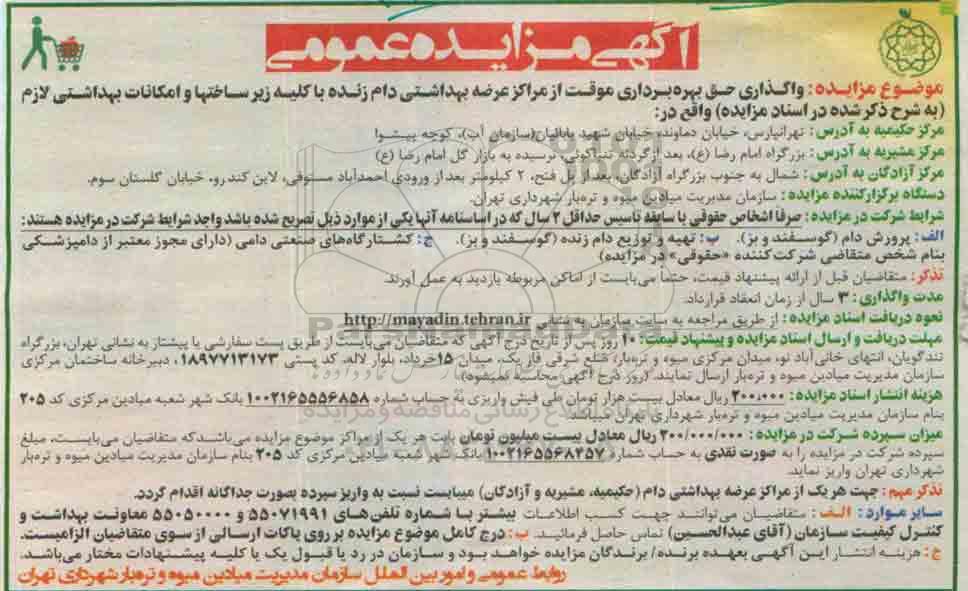 آگهی مزایده عمومی
موضوع مزایده: واگذاری حق بهره‌برداری موقت از مراکز عرضه بهداشتی دام زنده با کلیه زیرساختها و امکانات بهداشتی لازم
(به شرح ذکر شده در اسناد مزایده) واقع در:
مرکز حکیمیه به آدرس: تهرانپارس، خیابان دماوند، خیابان شهید بابائیان(سازمان آب)، کوچه پیشوا
مرکز مشیریه به آدرس: بزرگراه امام رضا (ع)، بعد از گردنه تنباکوئی، نرسیده به بازار گل امام رضا (ع)
مرکز آزادگان به آدرس: شمال به جنوب بزرگراه آزادگان، بعد از پل فتح، ۲ کیلومتر بعد از ورودی احمدآباد مستوفی، لاین کندرو، خیابان گلستان سوم.
دستگاه برگزارکننده مزایده: سازمان مدیریت میادین میوه و تره‌بار شهرداری تهران.
شرایط شرکت در مزایده: صرفاً اشخاص حقوقی با سابقه تاسیس حداقل ۲ سال که در اساسنامه آنها یکی از موارد ذیل تصریح شده باشد واجد شرایط شرکت در مزایده هستند:
الف: پرورش دام (گوسفند و بز). ب: تهیه و توزیع دام زنده (گوسفند و بز). ج: کشتارگاه‌های صنعتی دامی (دارای مجوز معتبر از دامپزشکی
بنام شخص متقاضی شرکت کننده «حقوقی» در مزایده)
تذکر: متقاضیان قبل از ارائه پیشنهاد قیمت، حتماً می‌بایست از اماکن مربوطه بازدید به عمل آورند.
مدت واگذاری: ۳ سال از زمان انعقاد قرارداد.
نحوه دریافت اسناد مزایده: از طریق مراجعه به سایت سازمان به نشانی http://mayadin.tehran.ir
مهلت دریافت و ارسال اسناد مزایده و پیشنهاد قیمت: ۱۰ روز پس از تاریخ درج آگهی که متقاضیان می‌بایست از طریق پست سفارشی یا پیشتاز به نشانی تهران، بزرگراه
تندگویان، انتهای خانی‌آباد نو، میدان مرکزی میوه و تره‌بار، ضلع شرقی فاز یک، میدان ۱۵خرداد، بلوار لاله، کد پستی ۱۸۹۷۷۱۳۱۷۳، دبیرخانه ساختمان مرکزی
سازمان مدیریت میادین میوه و تره‌بار ارسال نمایند. (روز درج آگهی محاسبه نمیشود)
هزینه انتشار اسناد مزایده: ۲۰۰،۰۰۰ ریال معادل بیست هزار تومان طی فیش واریزی به حساب شماره ۱۰۰۲۱۶۵۵۵۶۸۵۸ بانک شهر شعبه میادین مرکزی کد ۲۰۵
بنام سازمان مدیریت میادین میوه و تره‌بار شهرداری تهران میباشد.
میزان سپرده شرکت در مزایده: ۲۰۰/۰۰۰/۰۰۰ ریال معادل بیست میلیون تومان بابت هر یک از مراکز موضوع مزایده می‌باشد که متقاضیان می‌بایست، مبلغ
سپرده شرکت در مزایده را به صورت نقدی به حساب شماره ۱۰۰۲۱۶۵۵۶۸۲۵۷ بانک شهر شعبه میادین مرکزی کد ۲۰۵ بنام سازمان مدیریت میادین میوه و تره‌بار
شهرداری تهران واریز نماید.
تذکر مهم: جهت هر یک از مراکز عرضه بهداشتی دام (حکیمیه، مشیریه و آزادگان) میبایست نسبت به واریز سپرده بصورت جداگانه اقدام گردد.
سایر موارد: الف: متقاضیان می‌توانند جهت کسب اطلاعات بیشتر با شماره تلفن‌های ۵۵۰۷۱۹۹۱ و ۵۵۰۵۰۰۰۰ معاونت بهداشت و
کنترل کیفیت سازمان (آقای عبدالحسین) تماس حاصل فرمائید. ب: درج کامل موضوع مزایده بر روی پاکات ارسالی از سوی متقاضیان الزامیست.
ج: هزینه انتشار این آگهی بعهده برنده/ برندگان مزایده خواهد بود و سازمان در رد یا قبول یک یا کلیه پیشنهادات مختار می‌باشد.
روابط عمومی و امور بین الملل سازمان مدیریت میادین میوه و تره‌بار شهرداری تهران